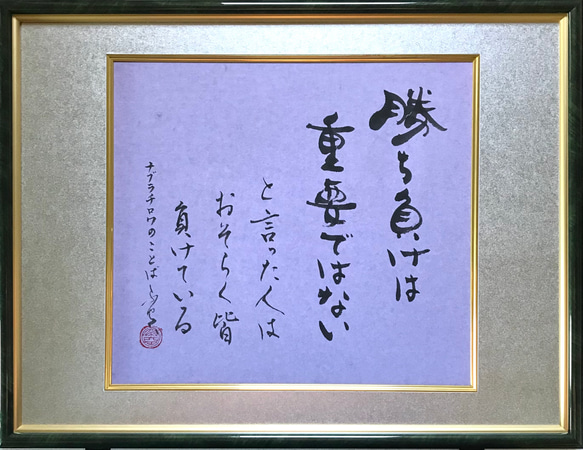 勝ち負けは
重要ではない
と言った人は
おそらく皆
負けている
ナブラチロワのことば